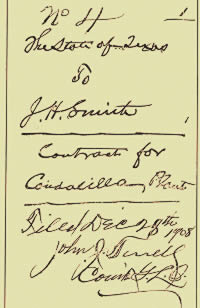 No 4 1
The State of Texas
To
J. H. Smith
Contract for
Candelilla Plant
Filed Dec 29th 1908
John J. Terrell
Com G.L.O.